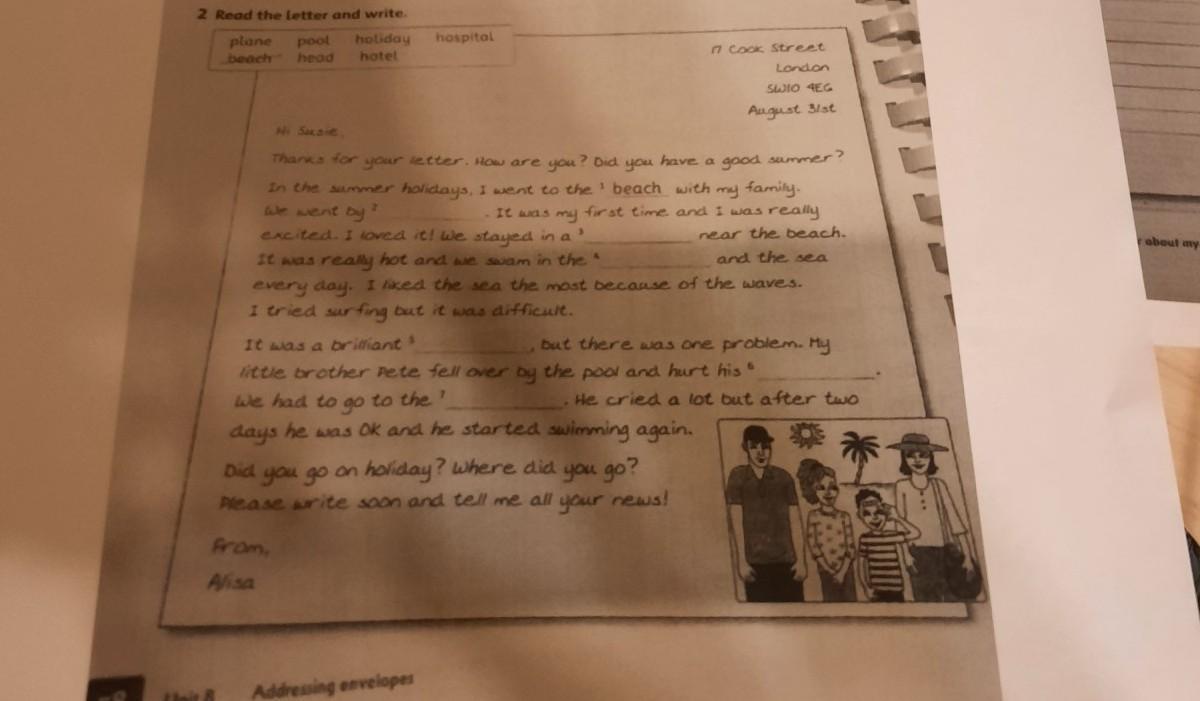 2 Read the letter and write.
plane pool holiday hospital
beach head hotel
17 Cook Street
London
SW10 4EG
August 31st
Hi Susie,
Thanks for your letter. How are you? Did you have a good summer?
In the summer holidays, I went to the 1 beach with my family.
We went by 2 __________. It was my first time and I was really
excited. I loved it! We stayed in a 3 __________ near the beach.
It was really hot and we swam in the 4 __________ and the sea
every day. I liked the sea the most because of the waves.
I tried surfing but it was difficult.
It was a brilliant 5 __________, but there was one problem. My
little brother Pete fell over by the pool and hurt his 6 __________.
We had to go to the 7 __________. He cried a lot but after two
days he was OK and he started swimming again.
Did you go on holiday? Where did you go?
Please write soon and tell me all your news!
From,
Alisa
Unit 8 Addressing envelopes
about my